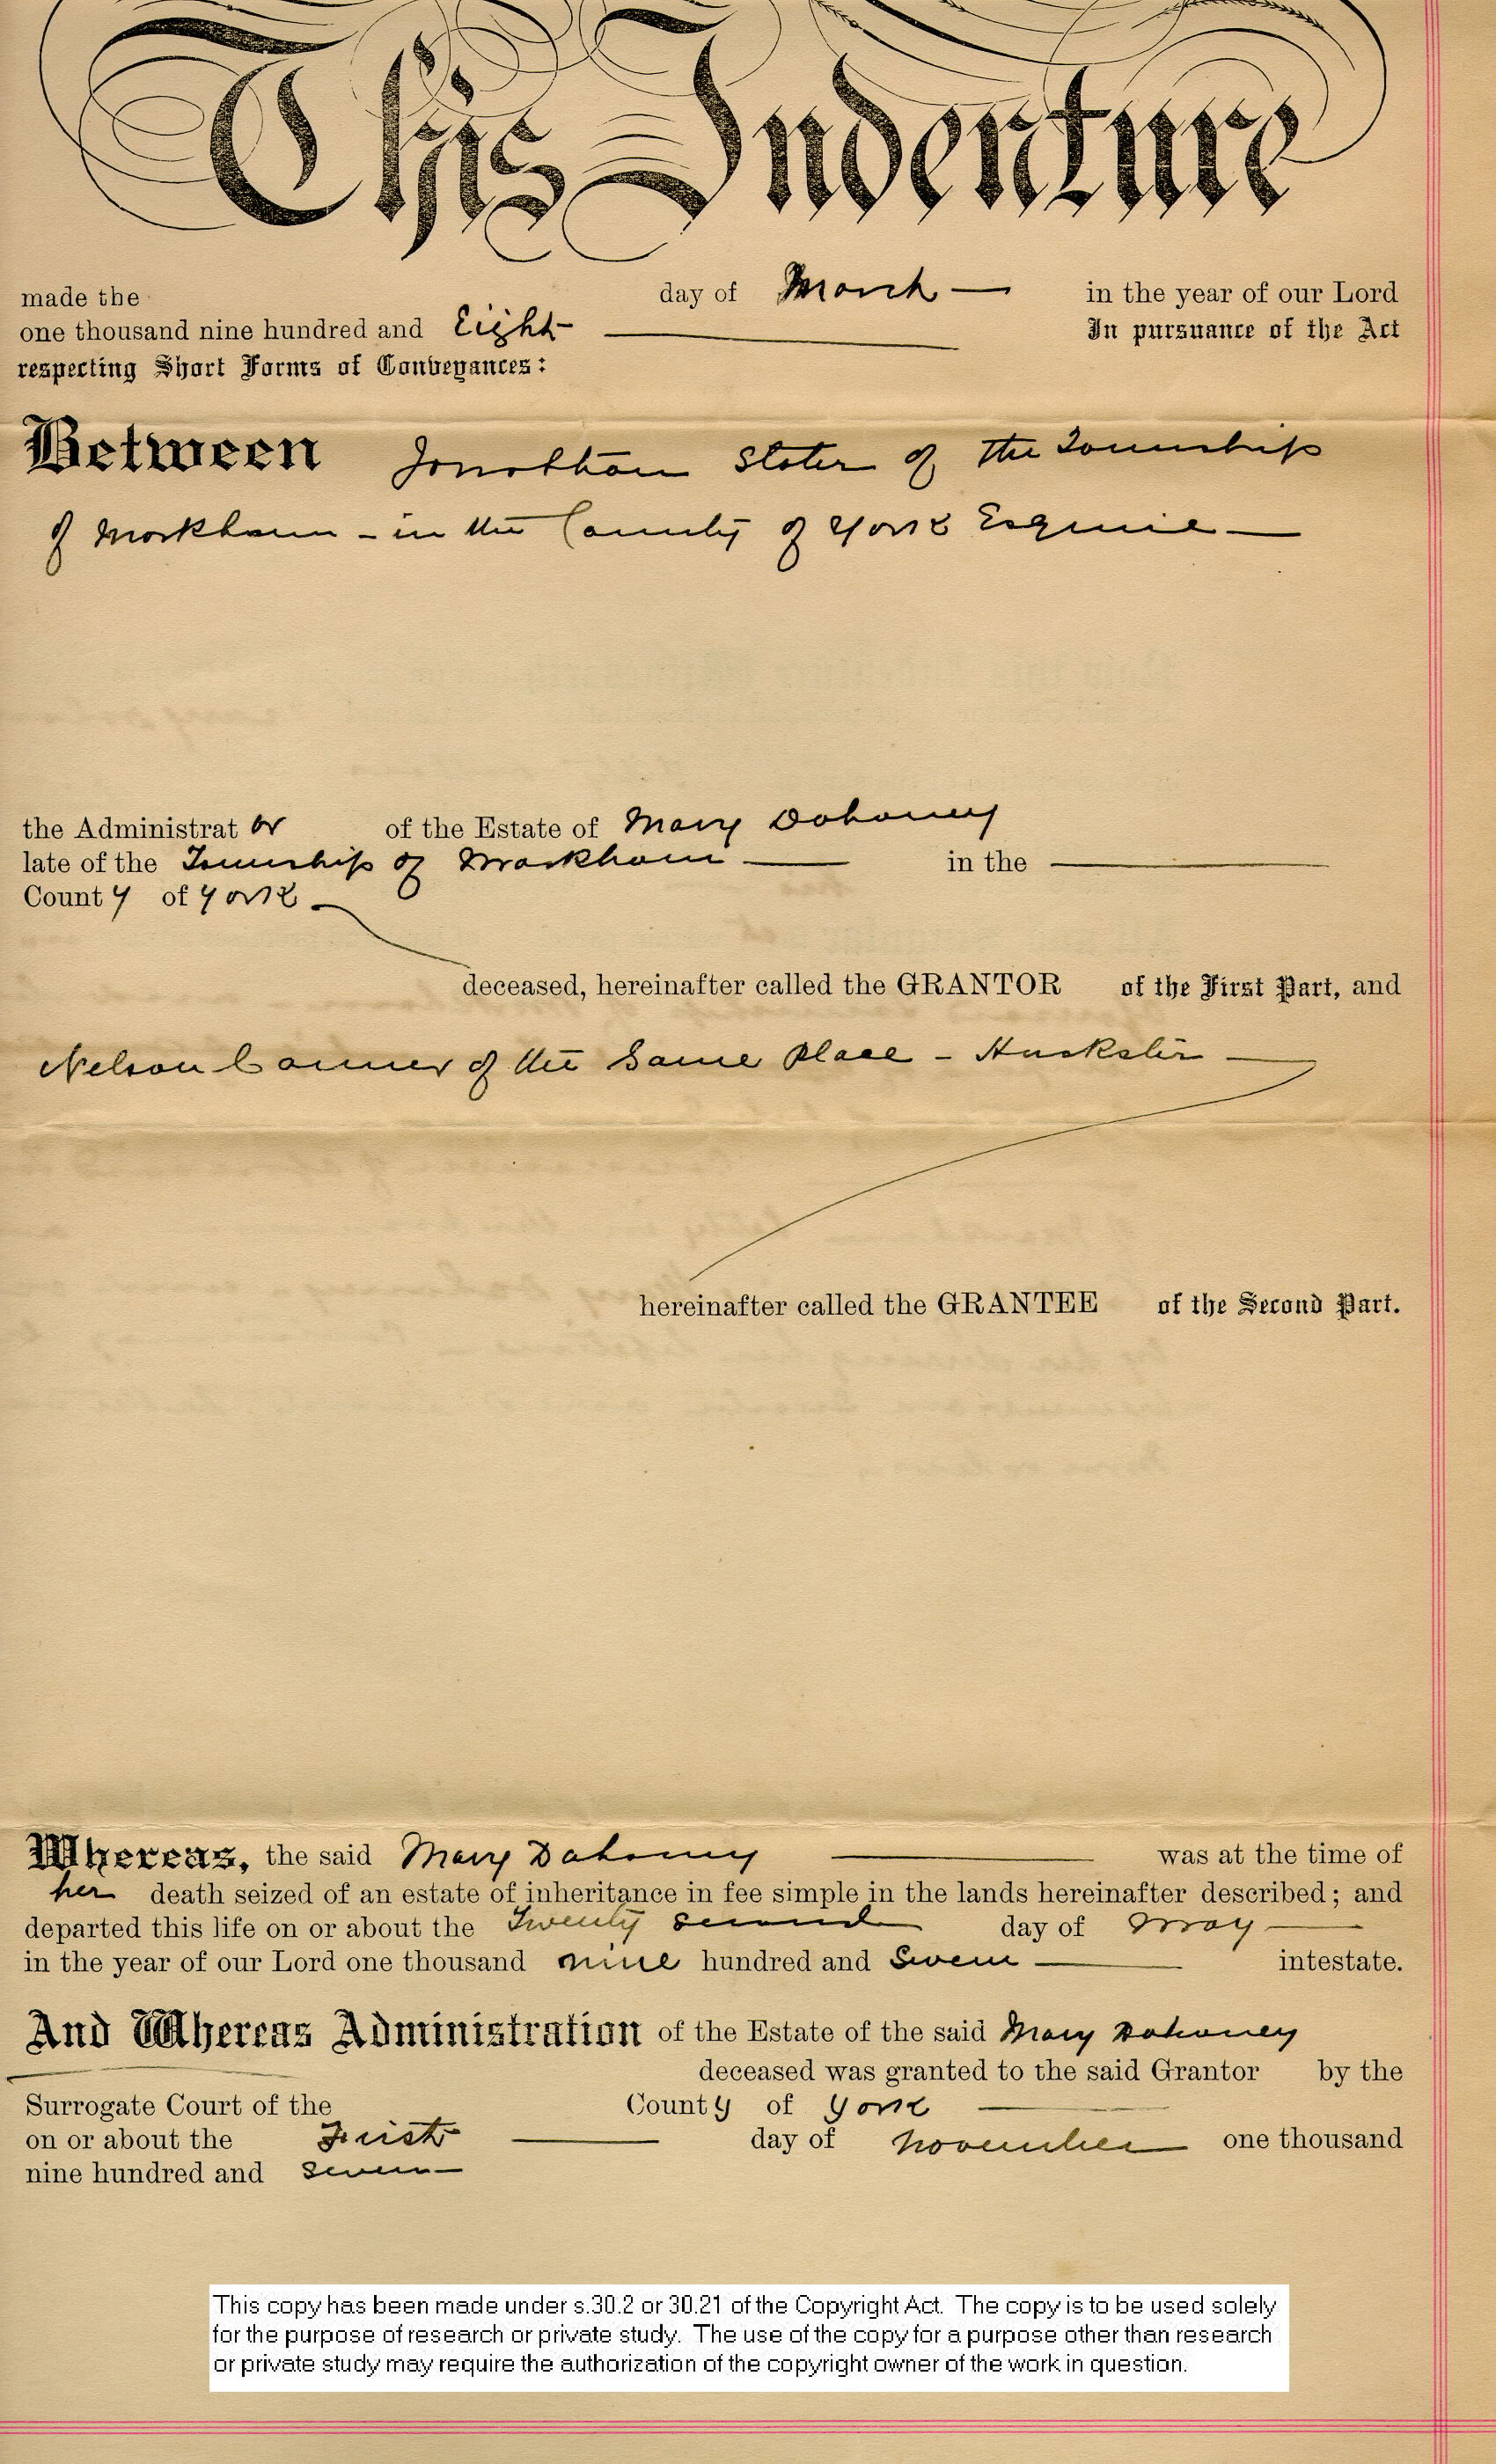 This Indenture
made the day of March in the year of our Lord
one thousand nine hundred and Eight In pursuance of the Act
respecting Short Forms of Conveyances:
Between Jonathan Slater of the Township
of Markham - in the County of York Esquire
the Administrat or of the Estate of Mary Dahoney
late of the Township of Markham in the
Count y of York
deceased, hereinafter called the GRANTOR of the First Part, and
Nelson Conner of the Same Place - Huckster
hereinafter called the GRANTEE of the Second Part.
Whereas, the said Mary Dahoney was at the time of
her death seized of an estate of inheritance in fee simple in the lands hereinafter described; and
departed this life on or about the Twenty second day of May
in the year of our Lord one thousand nine hundred and Seven intestate.
And Whereas Administration of the Estate of the said Mary Dahoney
deceased was granted to the said Grantor by the
Surrogate Court of the County of York
on or about the First day of November one thousand
nine hundred and Seven
This copy has been made under s.30.2 or 30.21 of the Copyright Act. The copy is to be used solely
for the purpose of research or private study. The use of the copy for a purpose other than research
or private study may require the authorization of the copyright owner of the work in question.